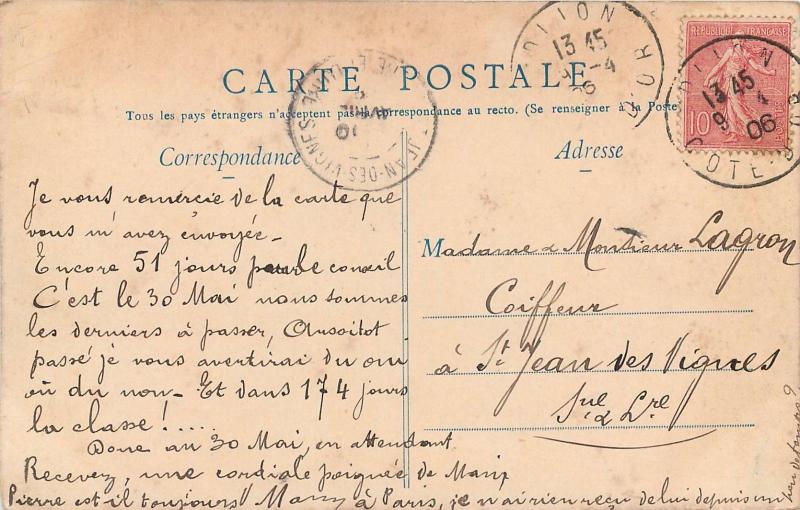 CARTE POSTALE
Tous les pays étrangers n'acceptent pas la correspondance au recto. (Se renseigner à la Poste)
Correspondance
Je vous remercie de la carte que
vous m'avez envoyée -
Encore 51 jours pour le conseil
C'est le 30 Mai nous sommes
les derniers à passer, Aussitot
passé je vous avertirai du oui
où du non - Et dans 174 jours
la classe !.....
Donc au 30 Mai, en attendant
Recevez, une cordiale poignée de Main
Pierre est-il toujours à Paris, je n'ai rien reçu de lui depuis un
Adresse
Madame & Monsieur Lagron
Coiffeur
à St Jean des Vignes
Sne & Lre
DIJON
13 45
9 -4
06
COTE D'OR
RÉPUBLIQUE FRANÇAISE
10
DIJON
13 45
9 4
06
COTE D'OR
ST JEAN-DES-VIGNES
AVRIL
06